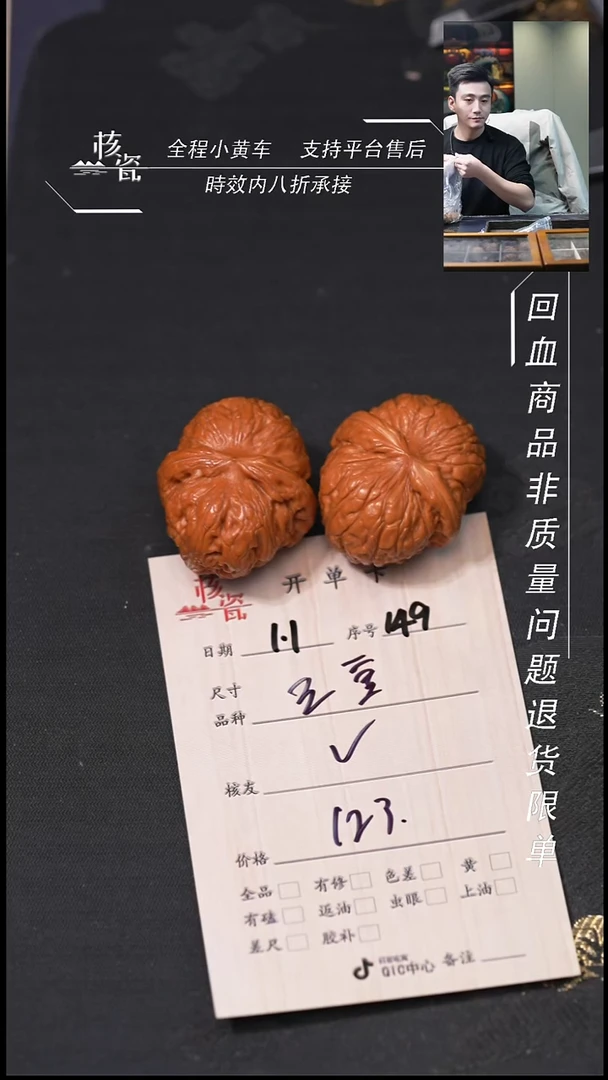 核瓷
全程小黄车 支持平台售后
時效内八折承接
回血商品非质量问题退货限单
核瓷
开单卡
日期 1.1 序号 149
尺寸
品种
✓
核友
123.
价格
全品 有修 色差 黄
有磕 返油 虫眼 上油
差尺 胶补
QIC中心 备注